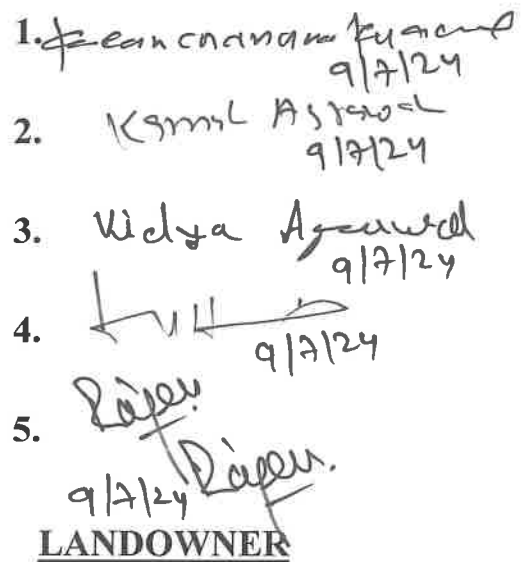 1.
9/7/24
2. Kamal Agarwal
9/7/24
3. Vidya Agarwal
9/7/24
4.
9/7/24
5. Rajeev
Rajeev.
9/7/24
LANDOWNER